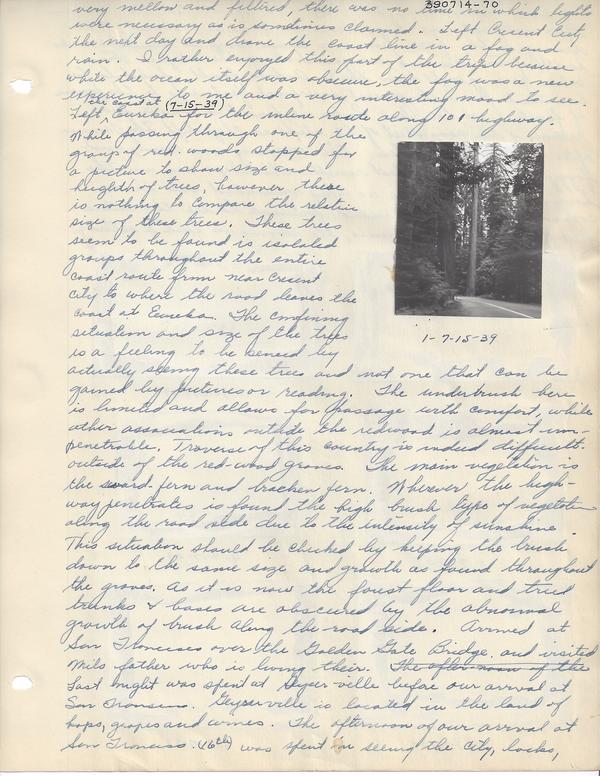 390714-70
very mellow and filtered, there was no time in which lights
were necessary as is sometimes claimed. Left Cresent City
the next day and drove the coast line in a fog and
rain. I rather enjoyed this part of the trip because
while the ocean itself was obscure, the fog was a new
experience to me and a very interesting mood to see.
the coast at (7-15-39)
Left Eureka for the inline route along 101 highway.
While passing through one of the
groups of red-woods stopped for
a picture to show size and
heighth of trees, however there
is nothing to compare the relative
size of these trees. These trees
seem to be found is isolated
groups throughout the entire
coast route from near Cresent
City to where the road leaves the
coast at Eureka. The confining
situation and size of the trees
is a feeling to be sensed by
actually seeing these trees and not one that can be
gained by pictures or reading. The underbrush here
is limited and allows for passage with comfort, while
other associations outside the redwood is almost im-
penetrable. Traverse of this country is indeed difficult
outside of the red-wood groves. The main vegetation is
the sword fern and bracken fern. Wherever the high-
way penetrates is found the high brush type of vegetation
along the road side due to the intensity of sunshine.
This situation should be checked by keeping the brush
down to the same size and growth as found throughout
the groves. As it is now the forest floor and tree
trunks & bases are obscured by the abnormal
growth of brush along the road side. Arrived at
San Francisco over the Golden Gate Bridge, and visited
Milo father who is living their. The after-noon of the
Last night was spent at Geyser-ville before our arrival at
San Francisco. Geyserville is located in the land of
hops, grapes and wines. The afternoon of our arrival at
San Francisco (16th) was spent in seeing the city, docks,
1-7-15-39